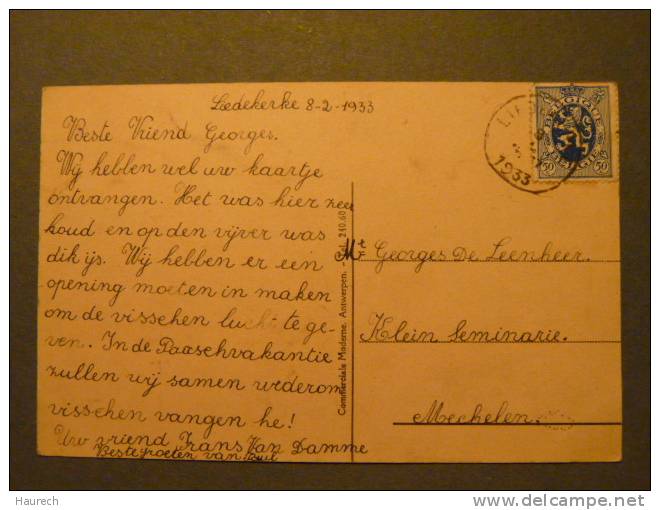 Liedekerke 8-2-1933
Beste Vriend Georges.
Wij hebben wel uw kaartje
ontvangen. Het was hier zeer
koud en op den vijver was
dik ijs. Wij hebben er een
opening moeten in maken
om de visschen lucht te ge-
ven. In de Paaschvakantie
zullen wij samen wederom
visschen vangen he!
Uw vriend Frans Van Damme
Beste groeten van
Commerciale Moderne. Antwerpen. Tel. 240.60
BELGIQUE
BELGIË
50 50
1933
Mr Georges De Leenheer.
Klein Seminarie.
Mechelen.
Haurech
www.delcampe.net